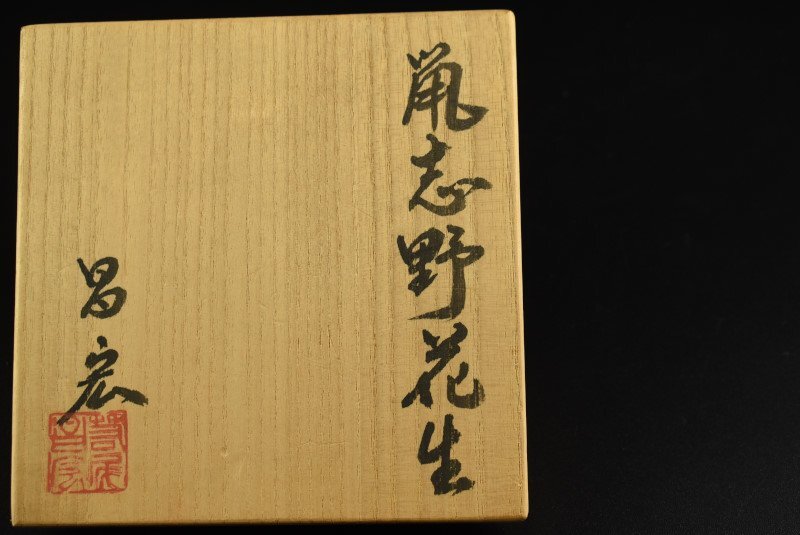 鼠志野花生
昌宏